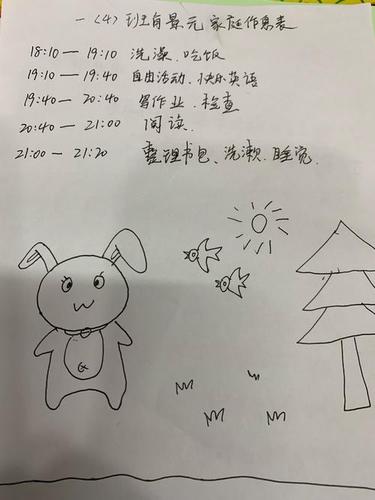 一(4)班肖景元家庭作息表
18:10—19:10 洗澡、吃饭
19:10—19:40 自由活动、快乐英语
19:40—20:40 写作业、检查
20:40—21:00 阅读、
21:00—21:20 整理书包、洗漱、睡觉.